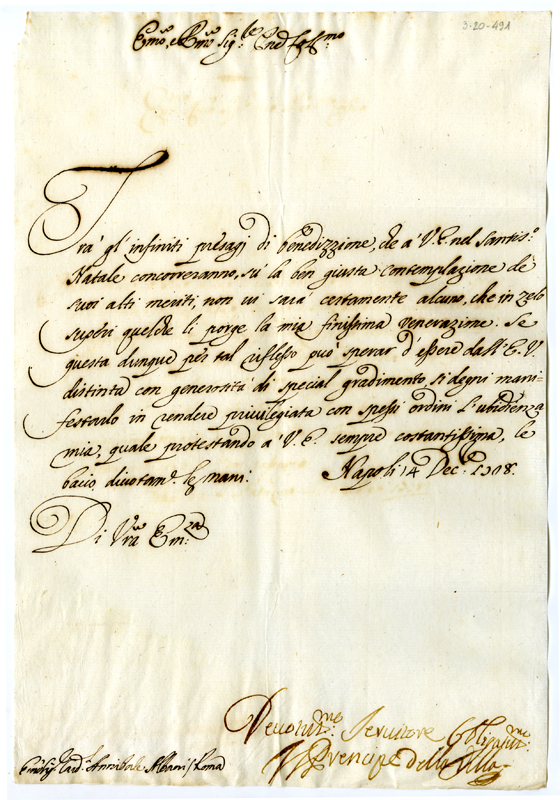 3-20-491
Emo, e Rmo Sig:re Pnè
Trà gl'infiniti presagj di benedizzione, che a' V. E. nel Santis:o
Natale concorreranno, sù la ben giusta contemplazione de
suoi alti meriti, non vi sarà certamente alcuno, che in zelo
superi quelche li porge la mia finissima venerazione. Se
questa dunque per tal riflesso può sperar d'essere dall'E. V.
distinta con generosità di special gradimento, si degni mani-
festarlo in rendere privilegiata con spessi ordini l'ubidienza
mia, quale protestando a' V. E. sempre costantissima, le
bacio divotam.e le mani:
Napoli 14 Dec.e 1718.
Di Vra Em:za
Devotis:mo Servitore Obligatis:mo
Il Prencipe della Villa
Card. Annibale Albani / Roma